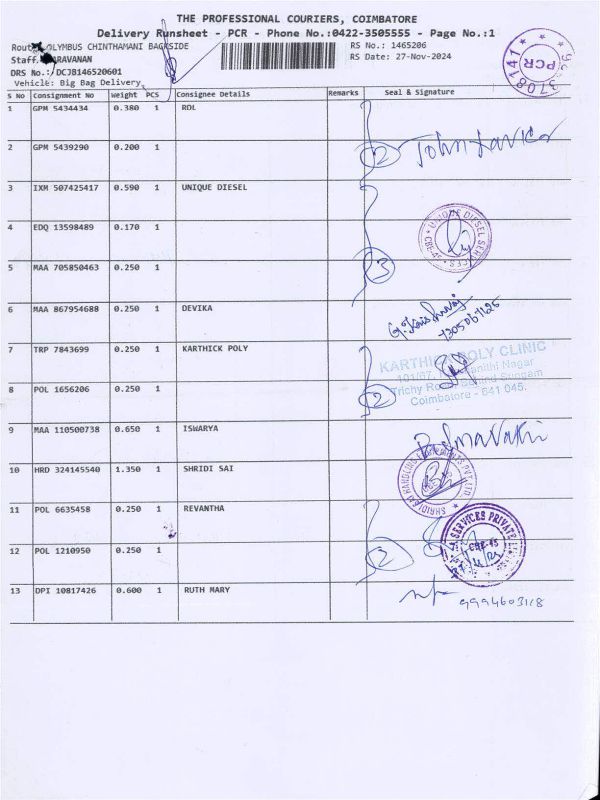 THE PROFESSIONAL COURIERS, COIMBATORE
Delivery Runsheet - PCR - Phone No.:0422-3505555 - Page No.:1
OLYMBUS CHINTHAMANI BAGKSIDE
RS No.: 1465206
Staff. RAVANAN
RS Date: 27-Nov-2024
DRS No.: DCJB146520601
Vehicle: Big Bag Delivery
PCR
S No Consignment No Weight PCS Consignee Details Remarks Seal & Signature
1 GPM 5434434 0.380 1 RDL
2 GPM 5439290 0.200 1
2 John
3 IXM 507425417 0.590 1 UNIQUE DIESEL
4 EDQ 13598489 0.170 1
UNIQUE DIESEL SERVICES * CBE-45 *
5 MAA 705850463 0.250 1
3
6 MAA 867954688 0.250 1 DEVIKA
7 TRP 7843699 0.250 1 KARTHICK POLY
KARTHICK POLY CLINIC
8 POL 1656206 0.250 1
2
Coimbatore - 641 045.
9 MAA 110500738 0.650 1 ISWARYA
10 HRD 324145540 1.350 1 SHRIDI SAI
11 POL 6635458 0.250 1 REVANTHA
SERVICES PRIVATE
12 POL 1210950 0.250 1
2
CBE-45
13 DPI 10817426 0.600 1 RUTH MARY